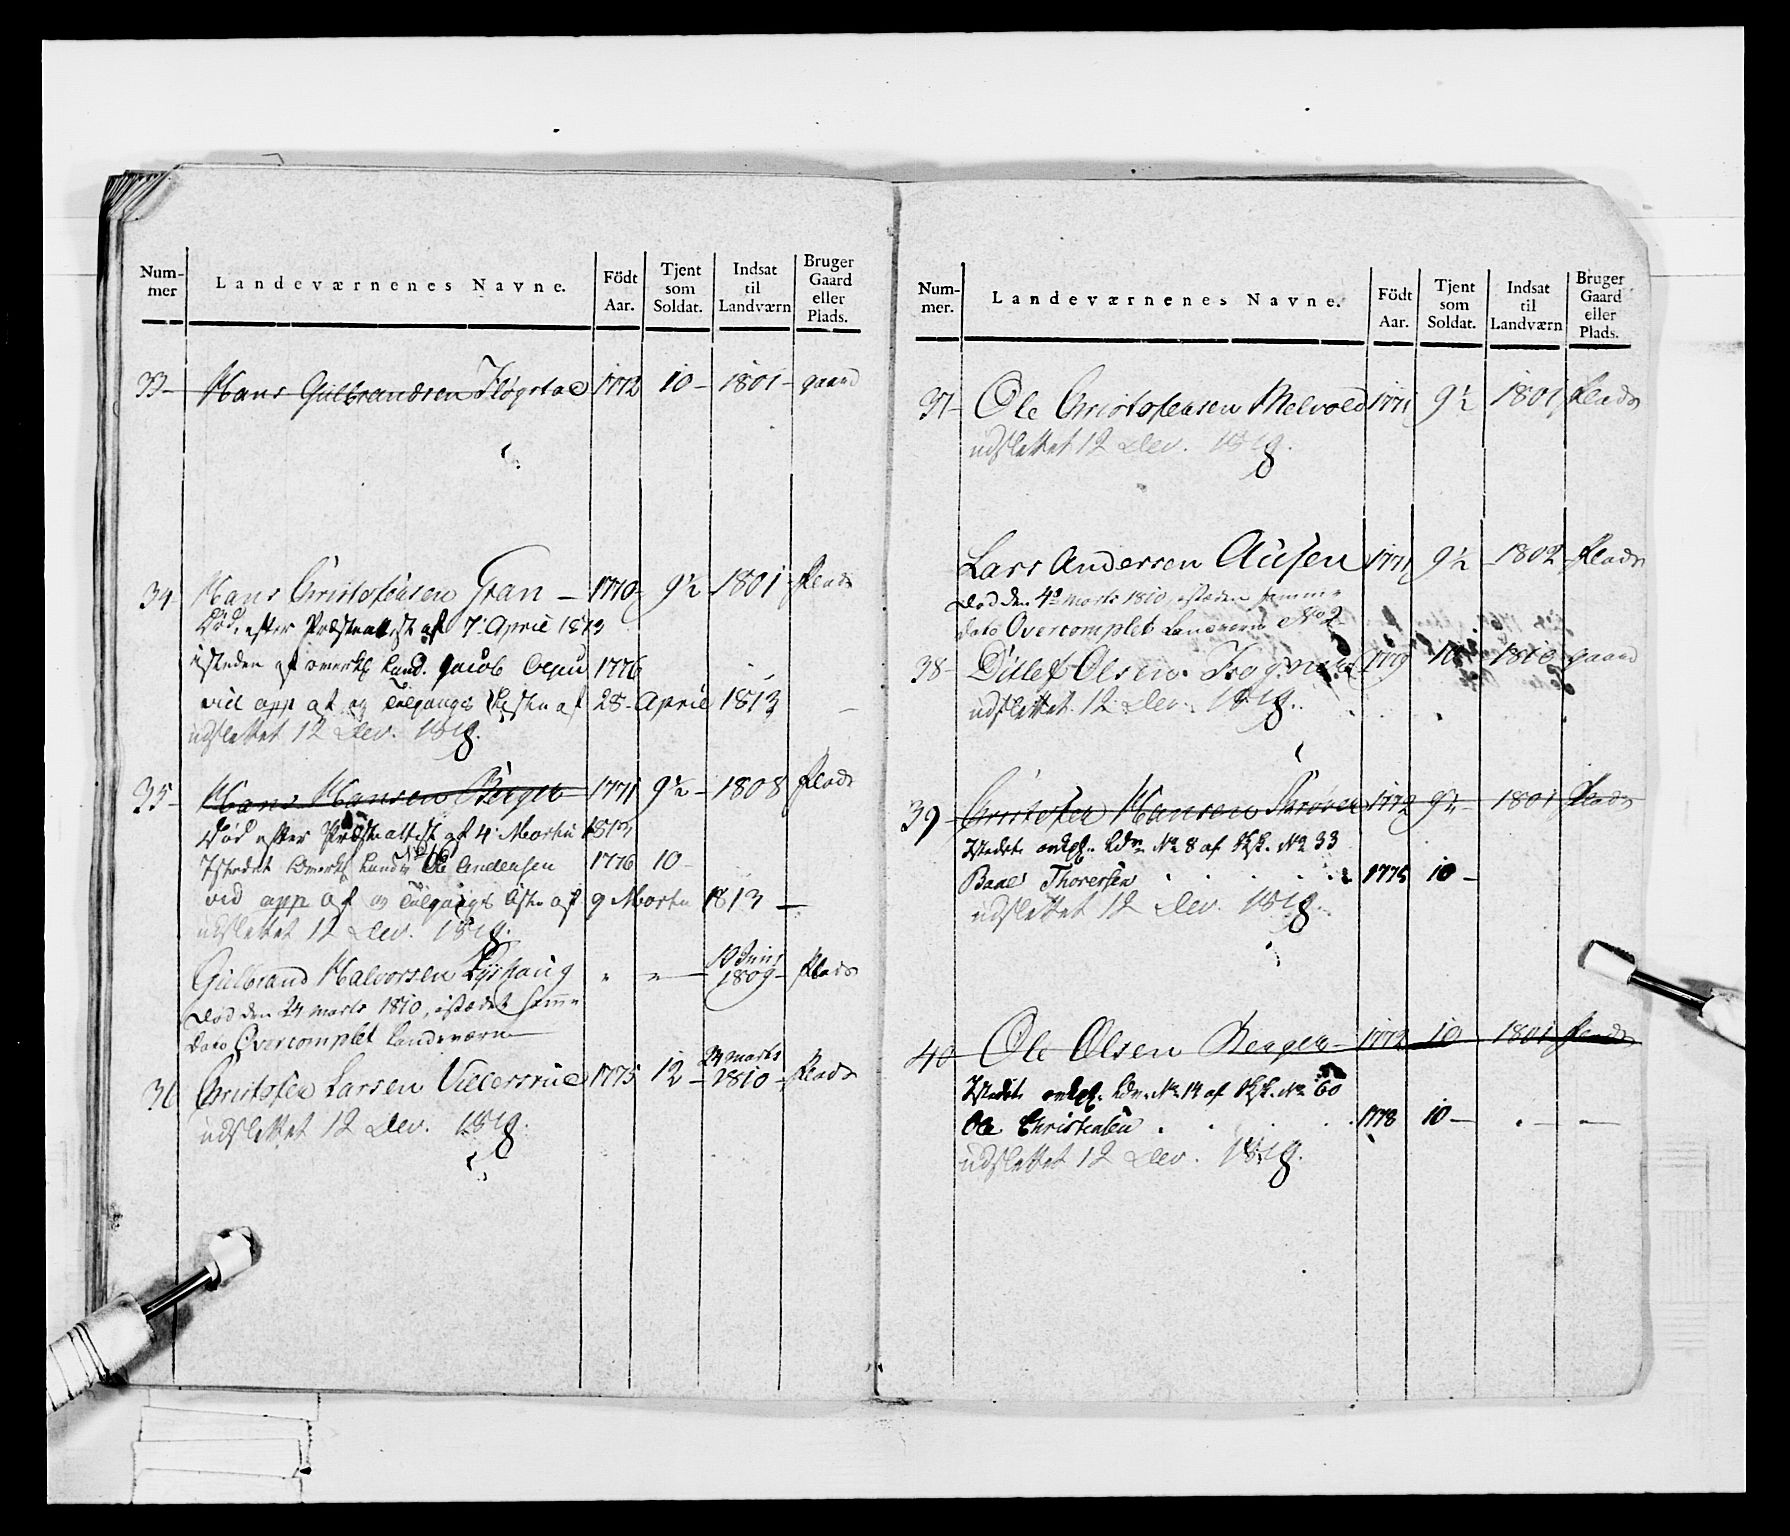 Num-mer Landeværnenes Navne. Födt Aar. Tjent som Soldat. Indsat til Landværn Bruger Gaard eller Plads.
33- Hans Gulbrandsen 1772 10- 1801- gaard
34- Hans Christophersen Gran - 1770- 9½ 1801 Plads
Död, efter Præsteattest af 7 April 1813
isteden af Land. Jacob 1776
ved app af og Tilgangs Listen af 28 April 1813
udslettet 12 Dec. 1819.
35- Hans Hansen Berger 1771 9½- 1808 Plads
Död efter Præsteattest af 4 Martii 1813
Istedet Ole Andersen 1776 10-
ved app af og Tilgangs Liste af 9 Martii 1813
udslettet 12 Dec. 1819.
Gulbrand Halvorsen 10 Juni 1809- Plads
Död den 24 Marts 1810, istædet samme
Dato Overcomplet Landeværn
36 Christopher Larsen 1775 12- 24 Marts 1810- Plads
udslettet 12 Dec. 1819.
Num-mer. Landeværnenes Navne. Födt Aar. Tjent som Soldat. Indsat til Landværn Bruger Gaard eller Plads.
37- Ole Christophersen Melvold 1771 9½ 1801 Plads
udslettet 12 Dec. 1819.
Lars Andersen 1771 9½ 1802 Plads
Död den 4de Marts 1810, istæden samme
Dato Overcomplet Landeværn No 2
38- Ditlef Olsen 10 1810 gaard
udslettet 12 Dec. 1819.
39- Christopher Hansen 1772 9½- 1801 Plads
Istedet No 8 af No 33
Thoresen 1775 10-
udslettet 12 Dec. 1819.
40 Ole Olsen Berger 1772 10 1801 Plads
Istedet No 14 af No 60
Ole Christensen 1778 10-
udslettet 12 Dec. 1819.